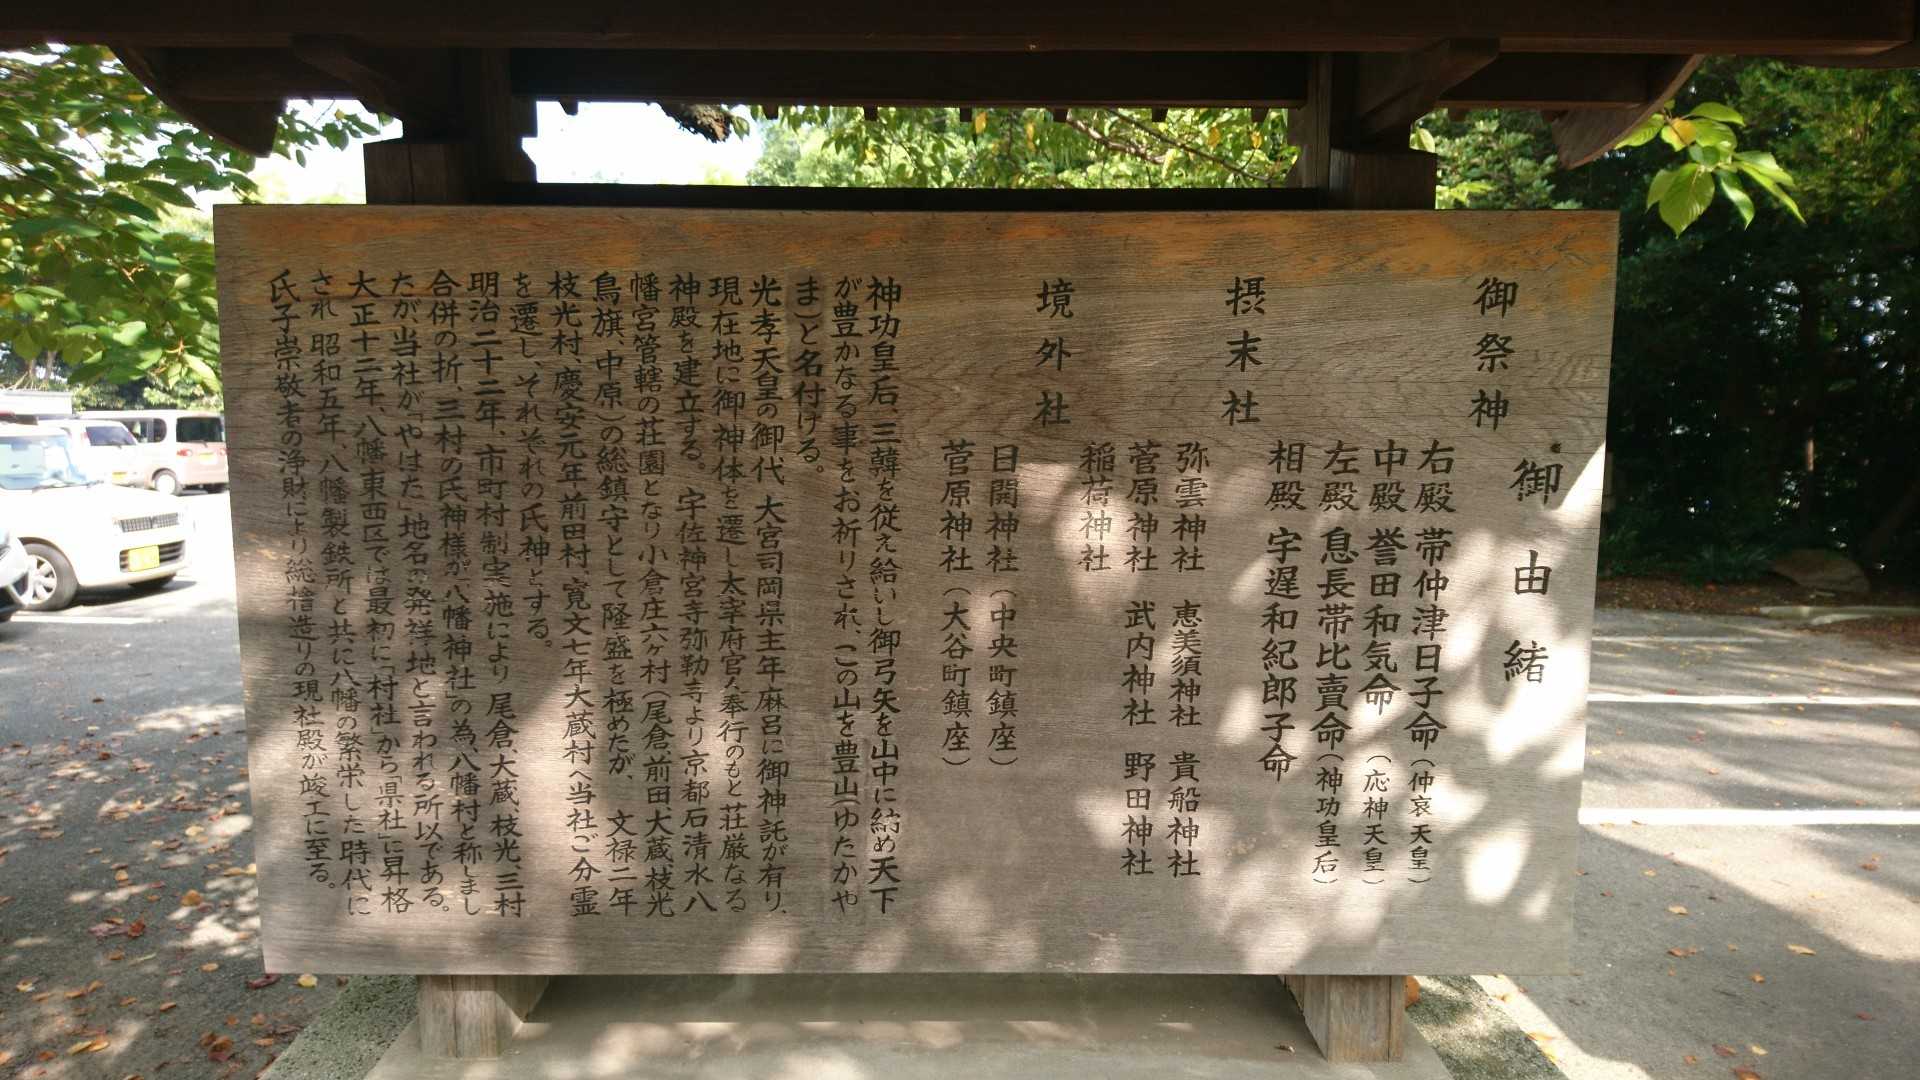 御由緒
御祭神
右殿 帯仲津日子命（仲哀天皇）
中殿 誉田和気命（応神天皇）
左殿 息長帯比賣命（神功皇后）
相殿 宇遅和紀郎子命
摂末社
弥雲神社 恵美須神社 貴船神社
菅原神社 武内神社 野田神社
稲荷神社
境外社
日開神社（中央町鎮座）
菅原神社（大谷町鎮座）
神功皇后、三韓を従え給いし御弓矢を山中に納め天下
が豊かなる事をお祈りされ、この山を豊山（ゆたかや
ま）と名付ける。
光孝天皇の御代 大宮司岡県主年麻呂に御神託が有り、
現在地に御神体を遷し太宰府官人奉行のもと荘厳なる
神殿を建立する。宇佐神宮寺弥勒寺より京都石清水八
幡宮管轄の荘園となり小倉庄六ヶ村（尾倉、前田、大蔵、枝光
鳥旗、中原）の総鎮守として隆盛を極めたが、文禄二年
枝光村、慶安元年前田村、寛文七年大蔵村へ当社ご分霊
を遷し、それぞれの氏神とする。
明治二十二年、市町村制実施により 尾倉、大蔵、枝光、三村
合併の折、三村の氏神様が「八幡神社」の為、八幡村と称しまし
たが、当社が「やはた」地名の発祥地と言われる所以である。
大正十二年、八幡東西区では最初に「村社」から「県社」に昇格
され 昭和五年、八幡製鉄所と共に八幡の繁栄した時代に
氏子崇敬者の浄財により総檜造りの現社殿が竣工に至る。